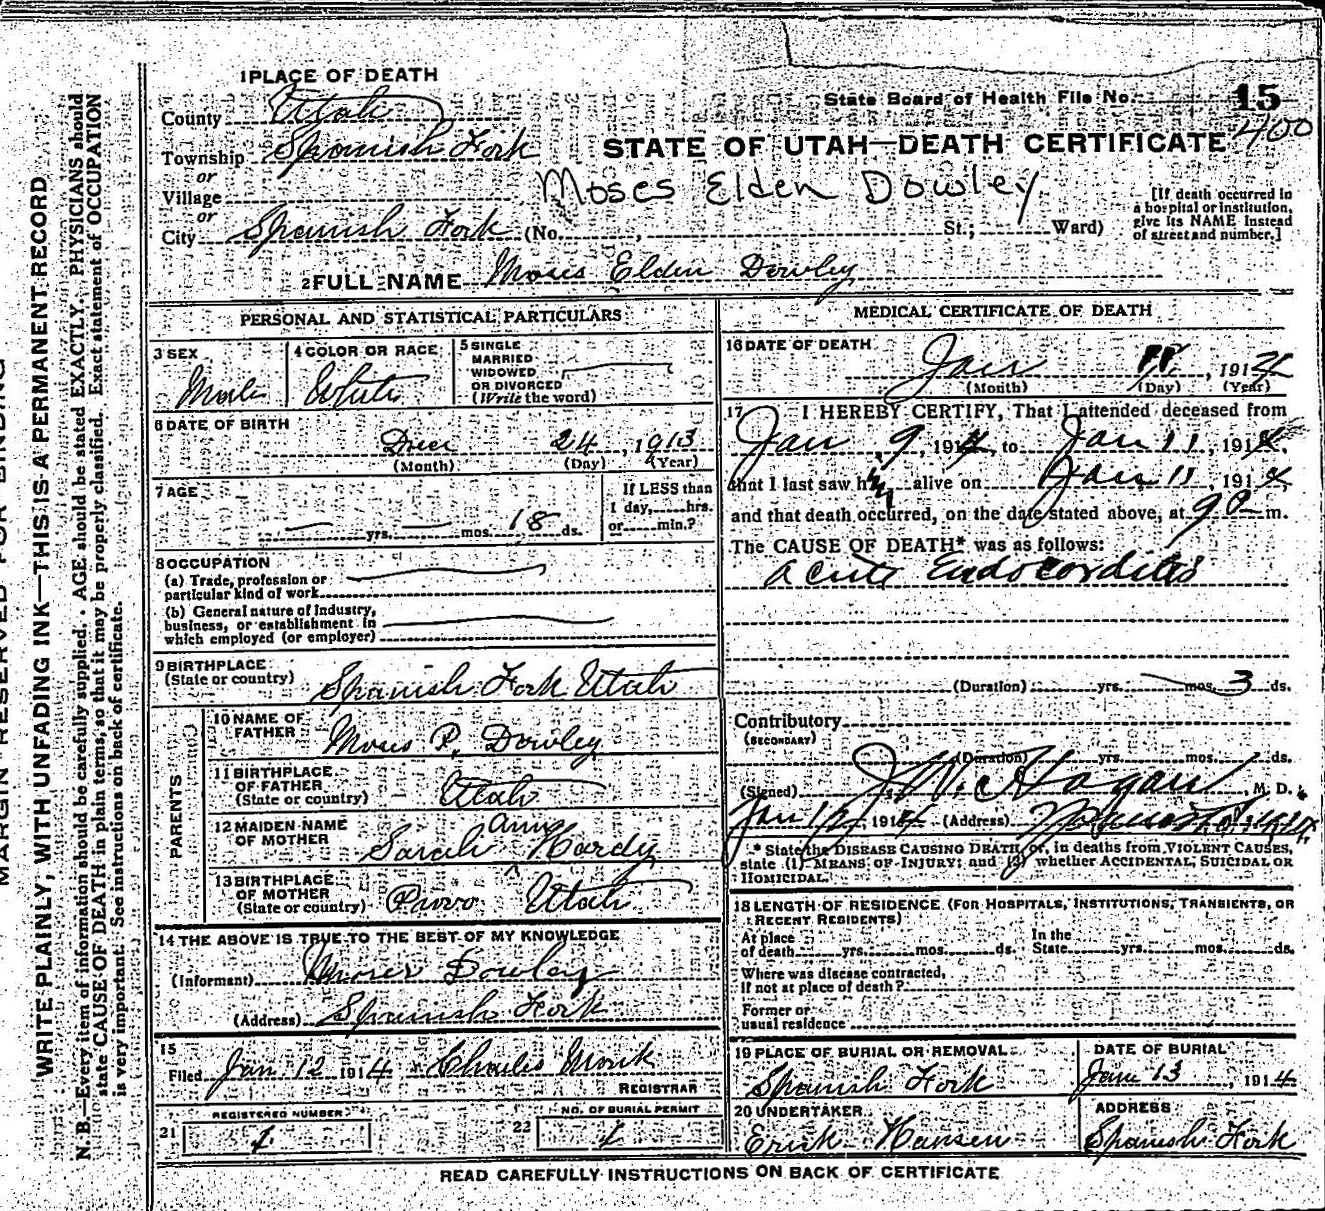 1 PLACE OF DEATH
County Utah
State Board of Health File No. 15
400
Township Spanish Fork
STATE OF UTAH—DEATH CERTIFICATE
or
Village
Moses Elden Dowley
or
City Spanish Fork (No. , St.; Ward)
[If death occurred in
a hospital or institution,
give its NAME instead
of street and number.]
2 FULL NAME Moses Elden Dowley
PERSONAL AND STATISTICAL PARTICULARS
3 SEX Male
4 COLOR OR RACE White
5 SINGLE
MARRIED
WIDOWED
OR DIVORCED
(Write the word)
6 DATE OF BIRTH
Dec 24, 1913
(Month) (Day) (Year)
7 AGE
yrs. mos. 18 ds.
If LESS than
1 day, hrs.
or min.?
8 OCCUPATION
(a) Trade, profession or
particular kind of work
(b) General nature of Industry,
business, or establishment in
which employed (or employer)
9 BIRTHPLACE
(State or country) Spanish Fork Utah
PARENTS
10 NAME OF
FATHER Moses P. Dowley
11 BIRTHPLACE
OF FATHER
(State or country) Utah
12 MAIDEN NAME
OF MOTHER Sarah Ann Hardy
13 BIRTHPLACE
OF MOTHER
(State or country) Provo Utah
14 THE ABOVE IS TRUE TO THE BEST OF MY KNOWLEDGE
(Informant) Moses Dowley
(Address) Spanish Fork
15
Filed Jan 12 1914 Charles Monk
REGISTRAR
REGISTERED NUMBER
21 1
NO. OF BURIAL PERMIT
22 1
MEDICAL CERTIFICATE OF DEATH
16 DATE OF DEATH
Jan 11, 1914
(Month) (Day) (Year)
17 I HEREBY CERTIFY, That I attended deceased from
Jan 9, 1914, to Jan 11, 1914,
that I last saw him alive on Jan 11, 1914,
and that death occurred, on the date stated above, at 9 P m.
The CAUSE OF DEATH* was as follows:
Acute Endocorditis
(Duration) yrs. mos. 3 ds.
Contributory
(SECONDARY)
(Duration) yrs. mos. ds.
(Signed) J. W. Hagan, M. D.
Jan 12, 1914 (Address)
* State the DISEASE CAUSING DEATH, or, in deaths from VIOLENT CAUSES,
state (1) MEANS OF INJURY; and (2) whether ACCIDENTAL, SUICIDAL OR
HOMICIDAL.
18 LENGTH OF RESIDENCE (FOR HOSPITALS, INSTITUTIONS, TRANSIENTS, OR
RECENT RESIDENTS)
At place
of death yrs. mos. ds.
In the
State yrs. mos. ds.
Where was disease contracted,
If not at place of death?
Former or
usual residence
19 PLACE OF BURIAL OR REMOVAL
Spanish Fork
DATE OF BURIAL
Jan 13, 1914
20 UNDERTAKER
Erick Hansen
ADDRESS
Spanish Fork
READ CAREFULLY INSTRUCTIONS ON BACK OF CERTIFICATE
MARGIN RESERVED FOR BINDING
WRITE PLAINLY, WITH UNFADING INK—THIS IS A PERMANENT RECORD
N. B.—Every item of information should be carefully supplied. AGE should be stated EXACTLY. PHYSICIANS should
state CAUSE OF DEATH in plain terms, so that it may be properly classified. Exact statement of OCCUPATION
is very important. See instructions on back of certificate.